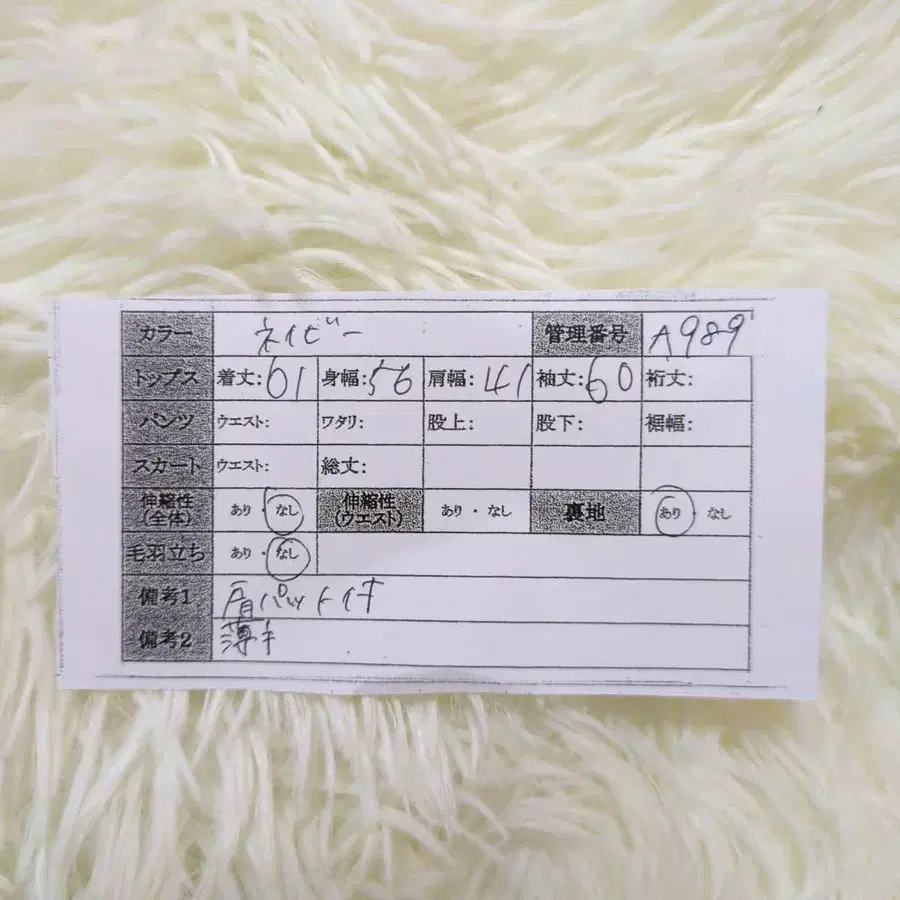 カラー ネイビー 管理番号 A989
トップス 着丈:61 身幅:56 肩幅:41 袖丈:60 裄丈:
パンツ ウエスト: ワタリ: 股上: 股下: 裾幅:
スカート ウエスト: 総丈:
伸縮性(全体) あり・なし 伸縮性(ウエスト) あり・なし 裏地 あり・なし
毛羽立ち あり・なし
備考1 肩パット付
備考2 薄手